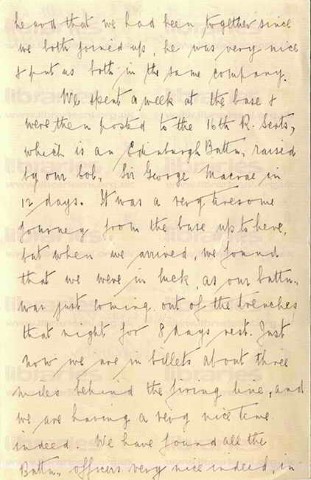 heard that we had been together since
we both joined up, he was very nice
& put us both in the same company.
We spent a week at the base &
were then posted to the 16th R. Scots,
which is an Edinburgh Battn, raised
by our Col, Sir George Macrae in
12 days. It was a very tiresome
journey from the base up to here,
but when we arrived, we found
that we were in luck, as our battn.
was just coming out of the trenches
that night for 8 days rest. Just
now we are in billets about three
miles behind the firing line, and
we are having a very nice time
indeed. We have found all the
Battn. officers very nice indeed, in